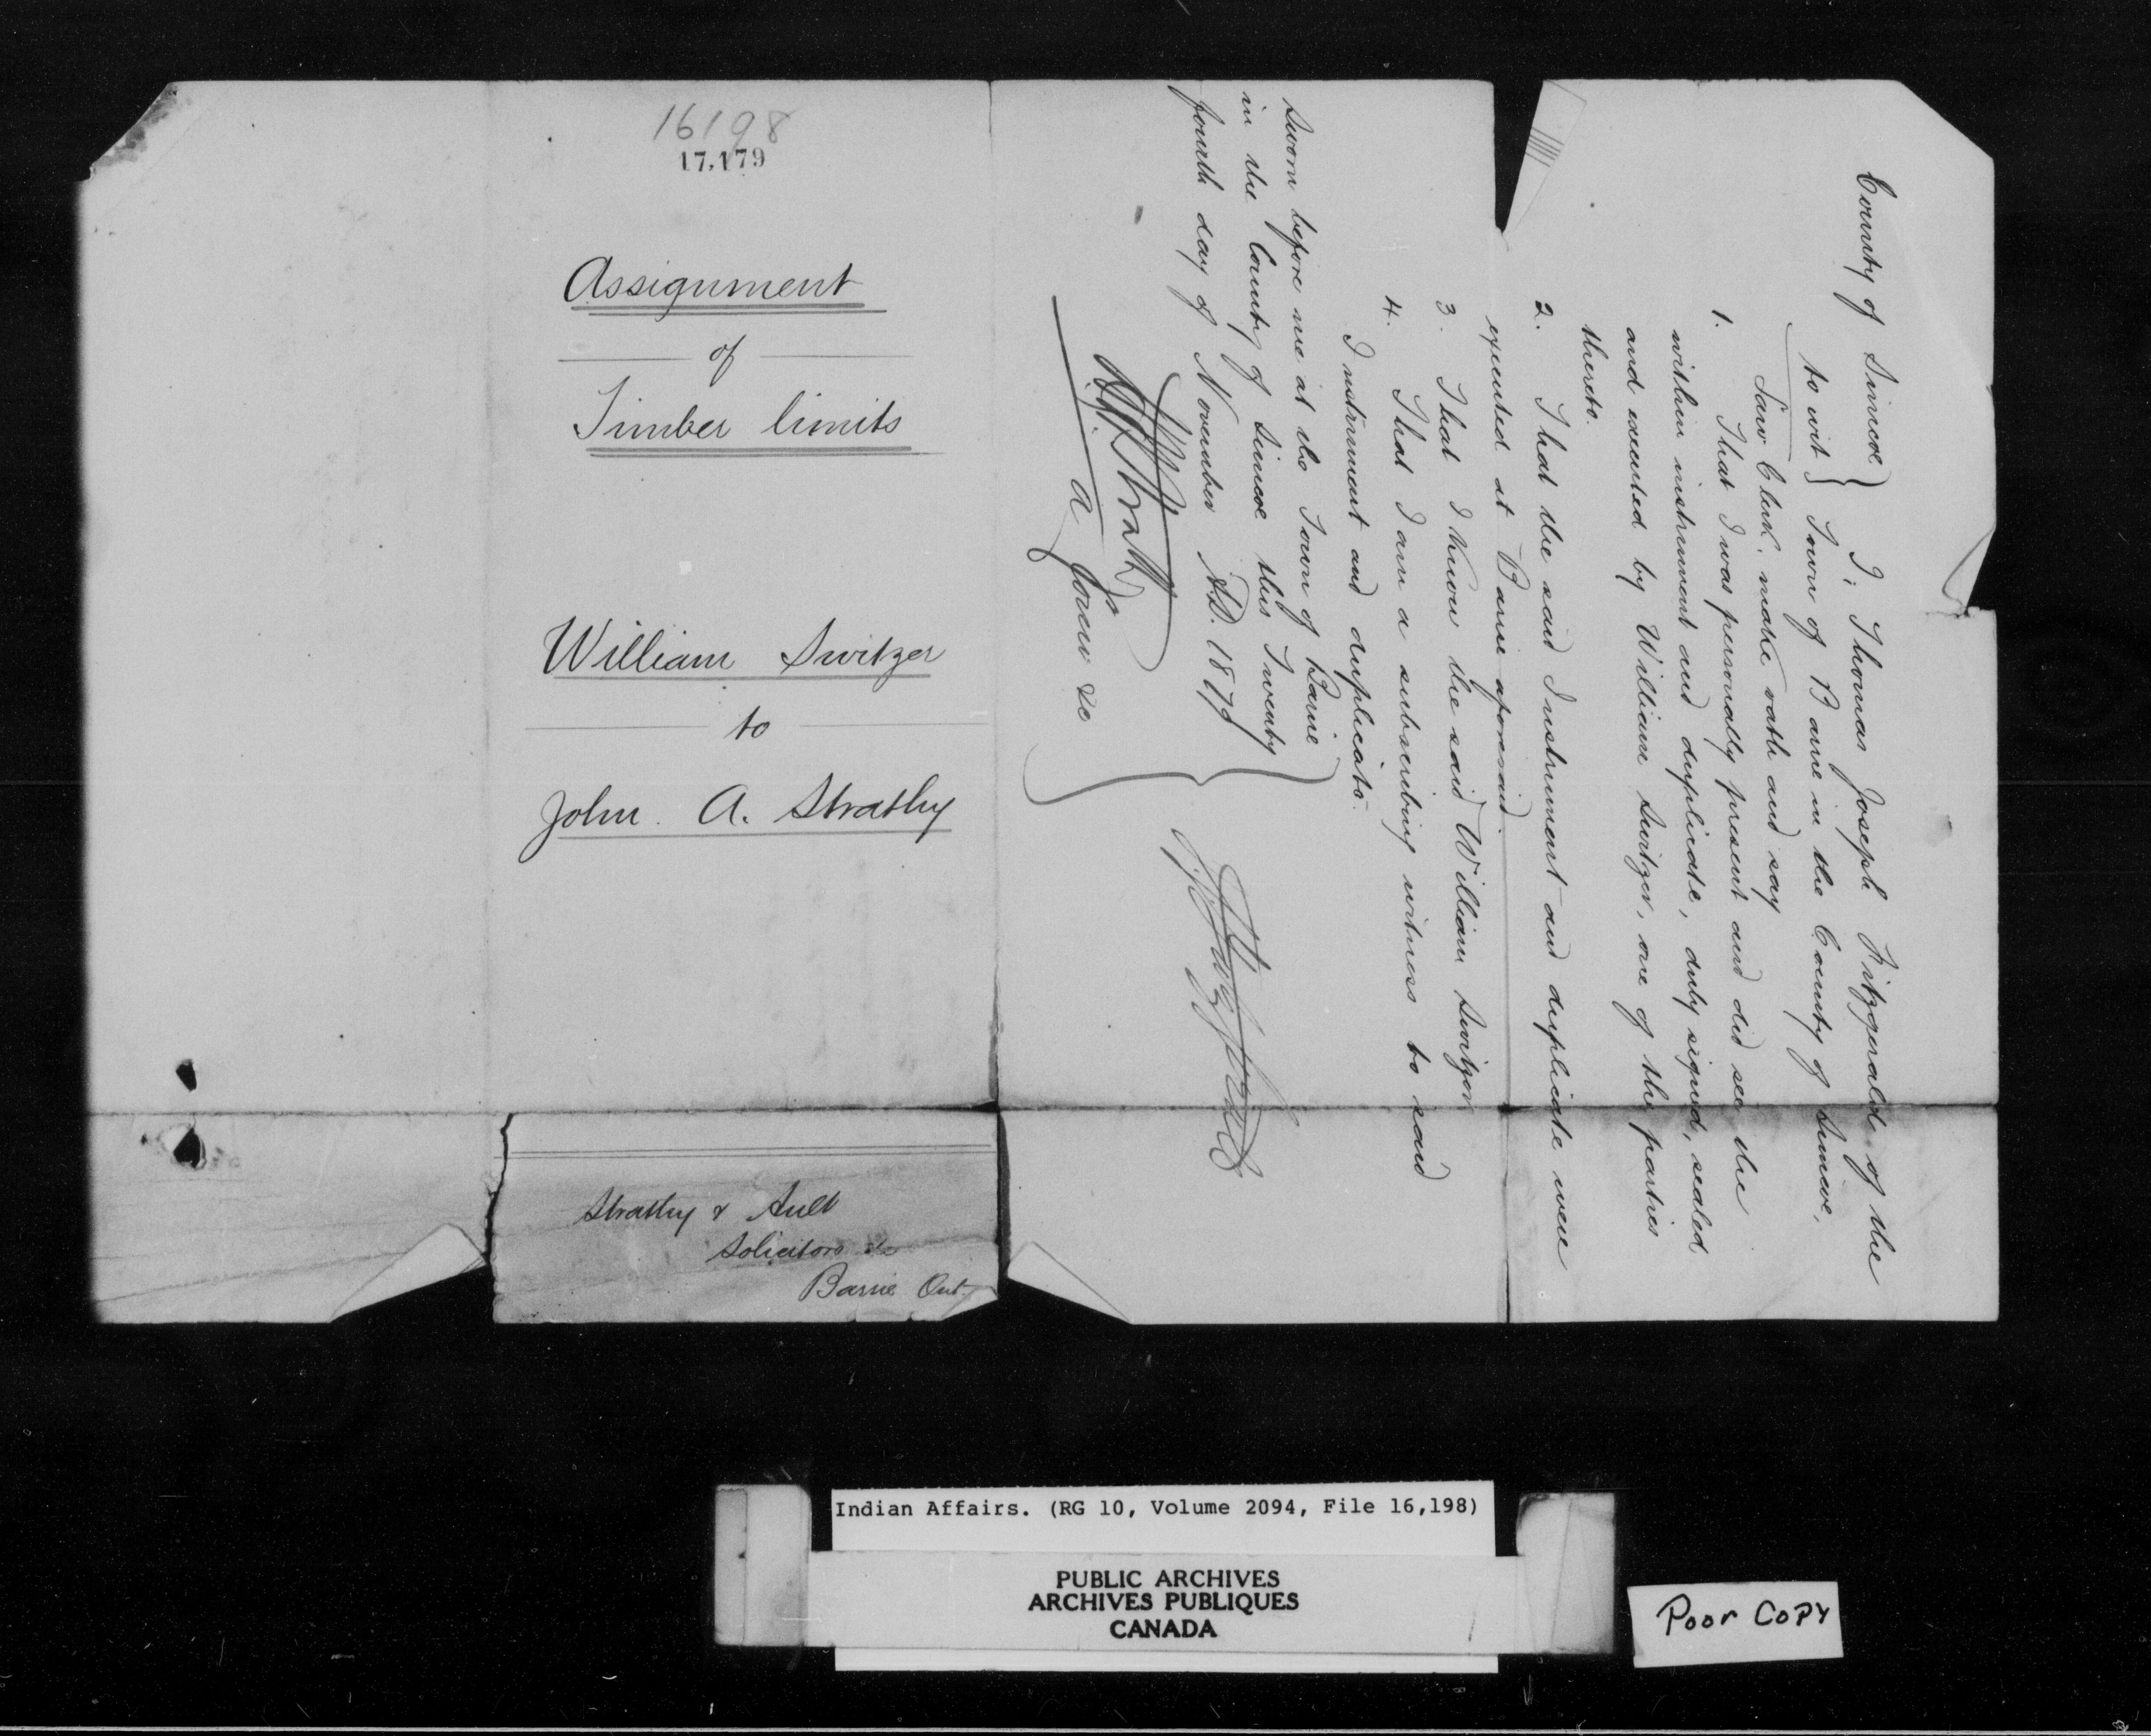 16198
17,179
Assignment
of
Timber limits
William Switzer
to
John A. Strathy
Strathy & Ault
Solicitors &c
Barrie Ont.
County of Simcoe } I, Thomas Joseph Fitzgerald of the
to wit } Town of Barrie in the County of Simcoe,
Law Clerk, make oath and say
1. That I was personally present and did see the
within instrument and duplicate, duly signed, sealed
and executed by William Switzer, one of the parties
thereto.
2. That the said Instrument and duplicate were
executed at Barrie aforesaid.
3. That I know the said William Switzer
4. That I am a subscribing witness to said
Instrument and duplicate.
Sworn before me at the Town of Barrie
in the County of Simcoe this Twenty
fourth day of November A.D. 1879
Strathy
A Comr &c
Fitzgerald
Indian Affairs. (RG 10, Volume 2094, File 16,198)
PUBLIC ARCHIVES
ARCHIVES PUBLIQUES
CANADA
Poor Copy